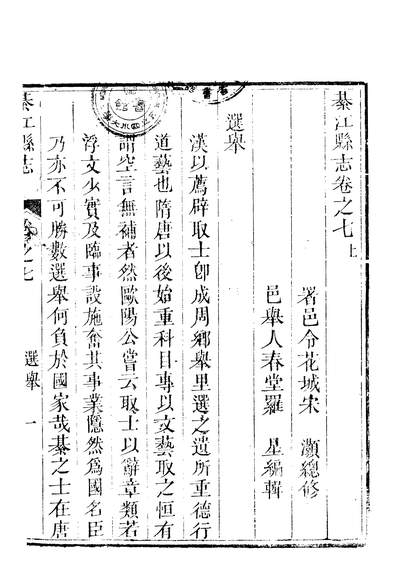 綦江縣志卷之七上
署邑令花城宋 灝總修
邑舉人春堂羅 星編輯
選舉
漢以薦辟取士卽成周鄉舉里選之遺所重德行
道藝也隋唐以後始重科目專以文藝取之恒有
謂空言無補者然歐陽公嘗云取士以辭章類若
浮文少實及臨事設施奮其事業隱然爲國名臣
乃亦不可勝數選舉何負於國家哉綦之士在唐
綦江縣志 卷之七 選舉 一